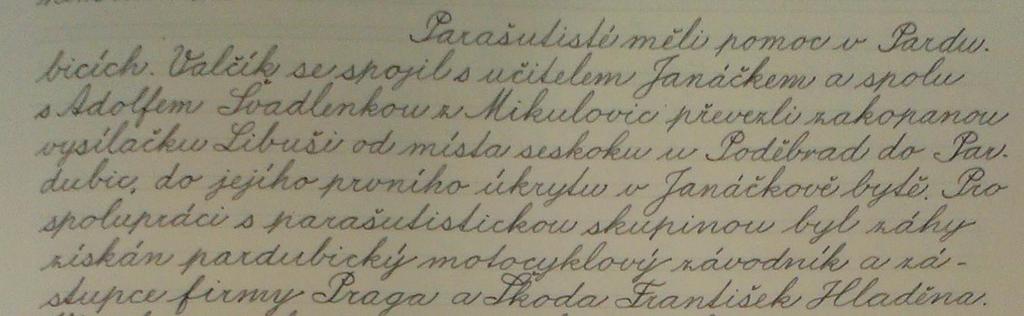 Parašutisté měli pomoc v Pardu.
bicích. Valčík se spojil s učitelem Janáčkem a spolu
s Adolfem Švadlenkou z Mikulovic převezli zakopanou
vysílačku Libuši od místa seskoku u Poděbrad do Par.
dubic, do jejího prvního úkrytu v Janáčkově bytě. Pro
spolupráci s parašutistickou skupinou byl záhy
získán pardubický motocyklový závodník a zá-
stupce firmy Praga a Škoda František Hladěna.